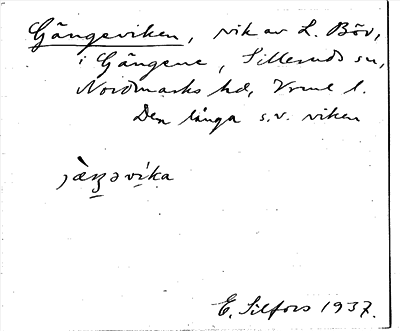 Gängeviken, vik av L. Böv,
i Gängene, Sillerud sn,
Nordmarks hd, Vrml l.
Den långa s.v. viken
E. Silfors 1937.